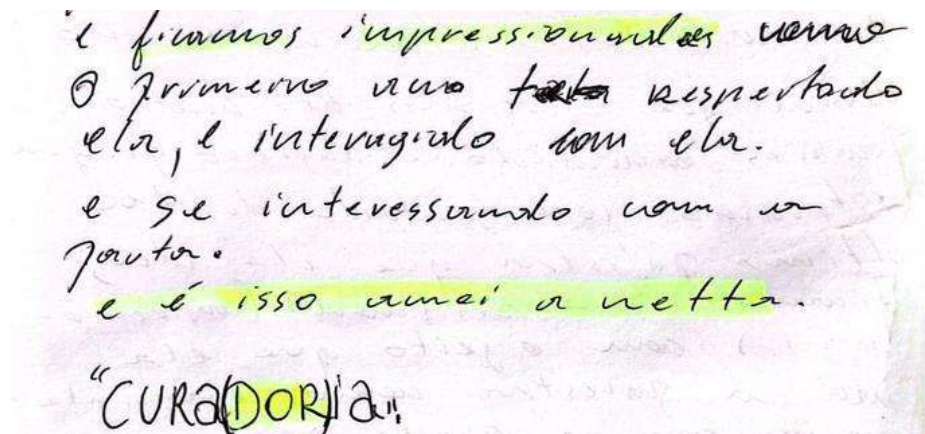 e ficamos impressionados como
o primeiro ano respeitado
ela, e interagido com ela.
e se interessando com a
pauta.
e é isso amei a netta.
"CURA(DOR)ia".